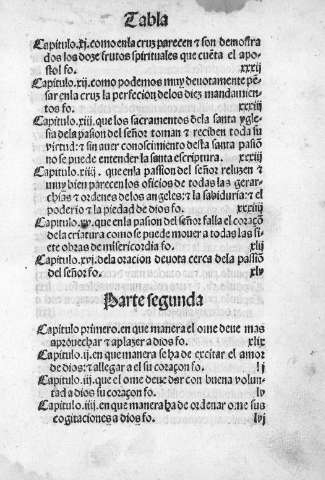 Tabla
Capitulo.xj.como en la cruz parecen ⁊ son demostra
dos los doze frutos spirituales que cuẽta el apo-
stol fo. xxxij
Capitulo.xij.como podemos muy deuotamente pẽ-
sar en la cruz la perfecion de los diez mandamien-
tos fo. xxxiij
Capitulo.xiij. que los sacramentos de la santa ygle-
sia de la pasion del señor toman ⁊ reciben toda su
virtud: ⁊ sin auer conoscimiento desta santa pasiõ
no se puede entender la santa escriptura. xxxiij
Capitulo.xiiij. que en la passion del señor reluzen ⁊
muy bien parecen los oficios de todas las gerar-
chias ⁊ ordenes de los angeles: ⁊ la sabiduria: ⁊ el
poderio ⁊ la piedad de dios fo. xxxiiij
Capitulo.xv.que en la pasion del señor falla el coraçõ
de la criatura como se puede mouer a todas las sie
te obras de misericordia fo. xlij
Capitulo.xvj.de la oracion deuota cerca de la passiõ
del señor fo. xlv
Parte segunda
Capitulo primero.en que manera el ome deue mas
aprouechar ⁊ aplazer a dios fo. xlix
Capitulo.ij.en que manera se ha de excitar el amor
de dios: ⁊ allegar a el su coraçon fo. lj
Capitulo.iij.que el ome deue dar con buena volun-
tad a dios su coraçon fo. lv
Capitulo.iiij.en que manera ha de ordenar ome sus
cogitaciones a dios fo. lvj